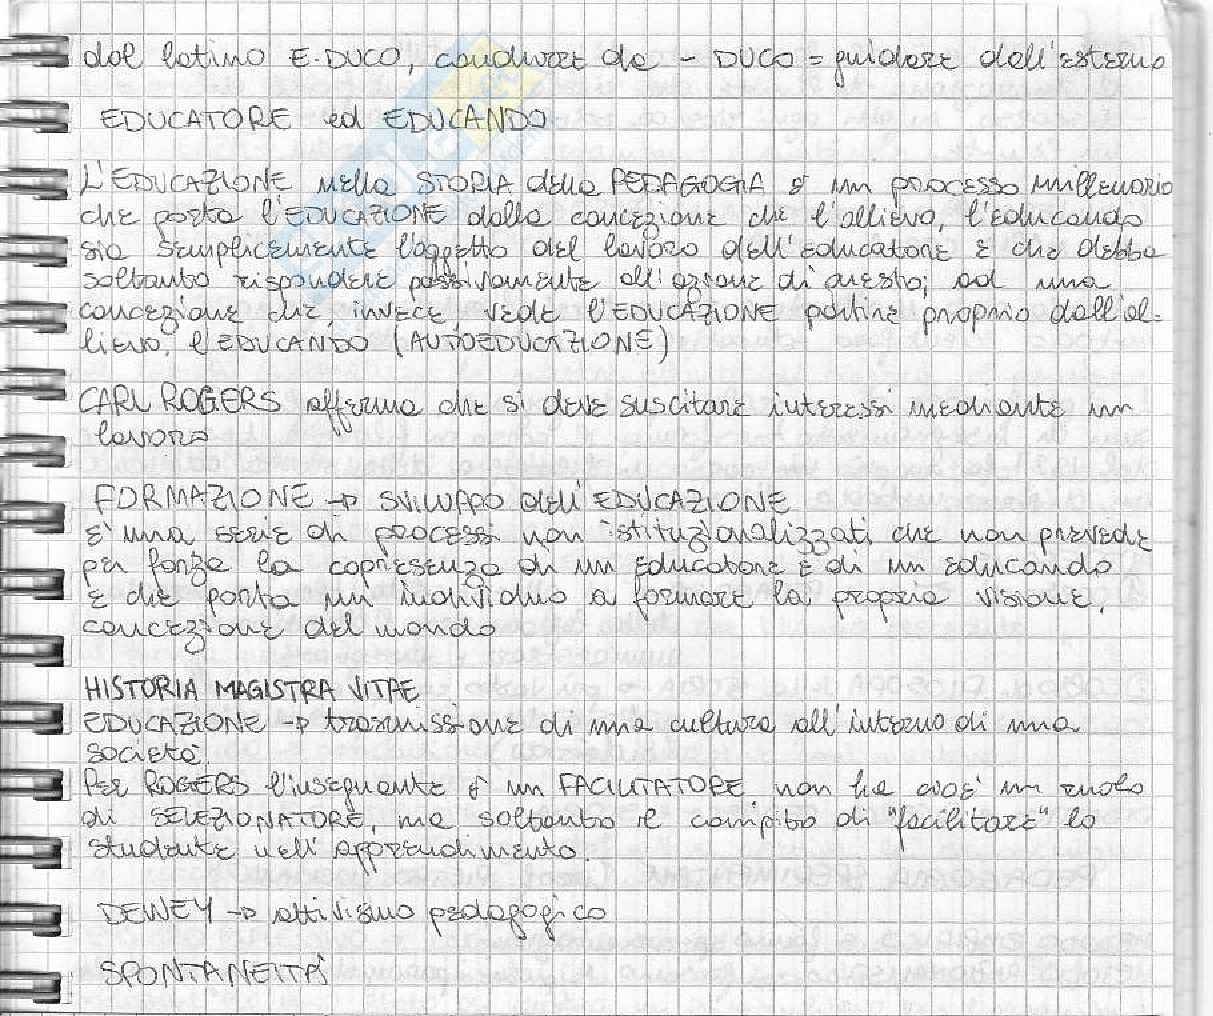 dal latino E-DUCO, condurre da - DUCO = guidare dall'esterno
EDUCATORE ed EDUCANDO
L'EDUCAZIONE nella STORIA della PEDAGOGIA è un processo millenario
che porta l'EDUCAZIONE dalla concezione che l'allievo, l'educando
sia semplicemente l'oggetto del lavoro dell'educatore e che debba
soltanto rispondere passivamente all'azione di questo; ad una
concezione che, invece, vede l'EDUCAZIONE partire proprio dall'al-
lievo, l'EDUCANDO (AUTOEDUCAZIONE)
CARL ROGERS afferma che si deve suscitare interessi mediante un
lavoro
FORMAZIONE → SVILUPPO dell'EDUCAZIONE
è una serie di processi non istituzionalizzati che non prevede
per forza la copresenza di un educatore e di un educando
e che porta un individuo a formare la propria visione,
concezione del mondo
HISTORIA MAGISTRA VITAE
EDUCAZIONE → trasmissione di una cultura all'interno di una
società.
Per ROGERS l'insegnante è un FACILITATORE non ha cioè un ruolo
di SELEZIONATORE, ma soltanto il compito di "facilitare" lo
studente nell'apprendimento.
DEWEY → attivismo pedagogico
SPONTANEITÀ